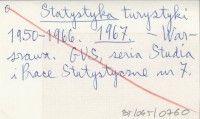 Statystyka turystyki
1950-1966. 1967. - War-
szawa. GUS, seria Studia
i Prace Statystyczne nr 7.
BF/OST/0760